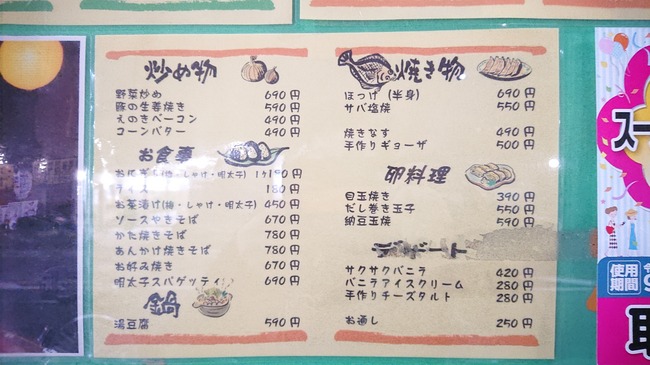 炒め物
野菜炒め 690円
豚の生姜焼き 590円
えのきベーコン 490円
コーンバター 490円
お食事
おにぎり(梅・しゃけ・明太子) 1ケ190円
ライス 180円
お茶漬け(梅・しゃけ・明太子) 450円
ソースやきそば 670円
かた焼きそば 780円
あんかけ焼きそば 780円
お好み焼き 670円
明太子スパゲッティ 690円
鍋
湯豆腐 590円
焼き物
ほっけ (半身) 690円
サバ塩焼 550円
焼きなす 490円
手作りギョーザ 500円
卵料理
目玉焼き 390円
だし巻き玉子 550円
納豆玉焼 590円
デザート
サクサクバニラ 420円
バニラアイスクリーム 280円
手作りチーズタルト 280円
お通し 250円
スー
使用
期間